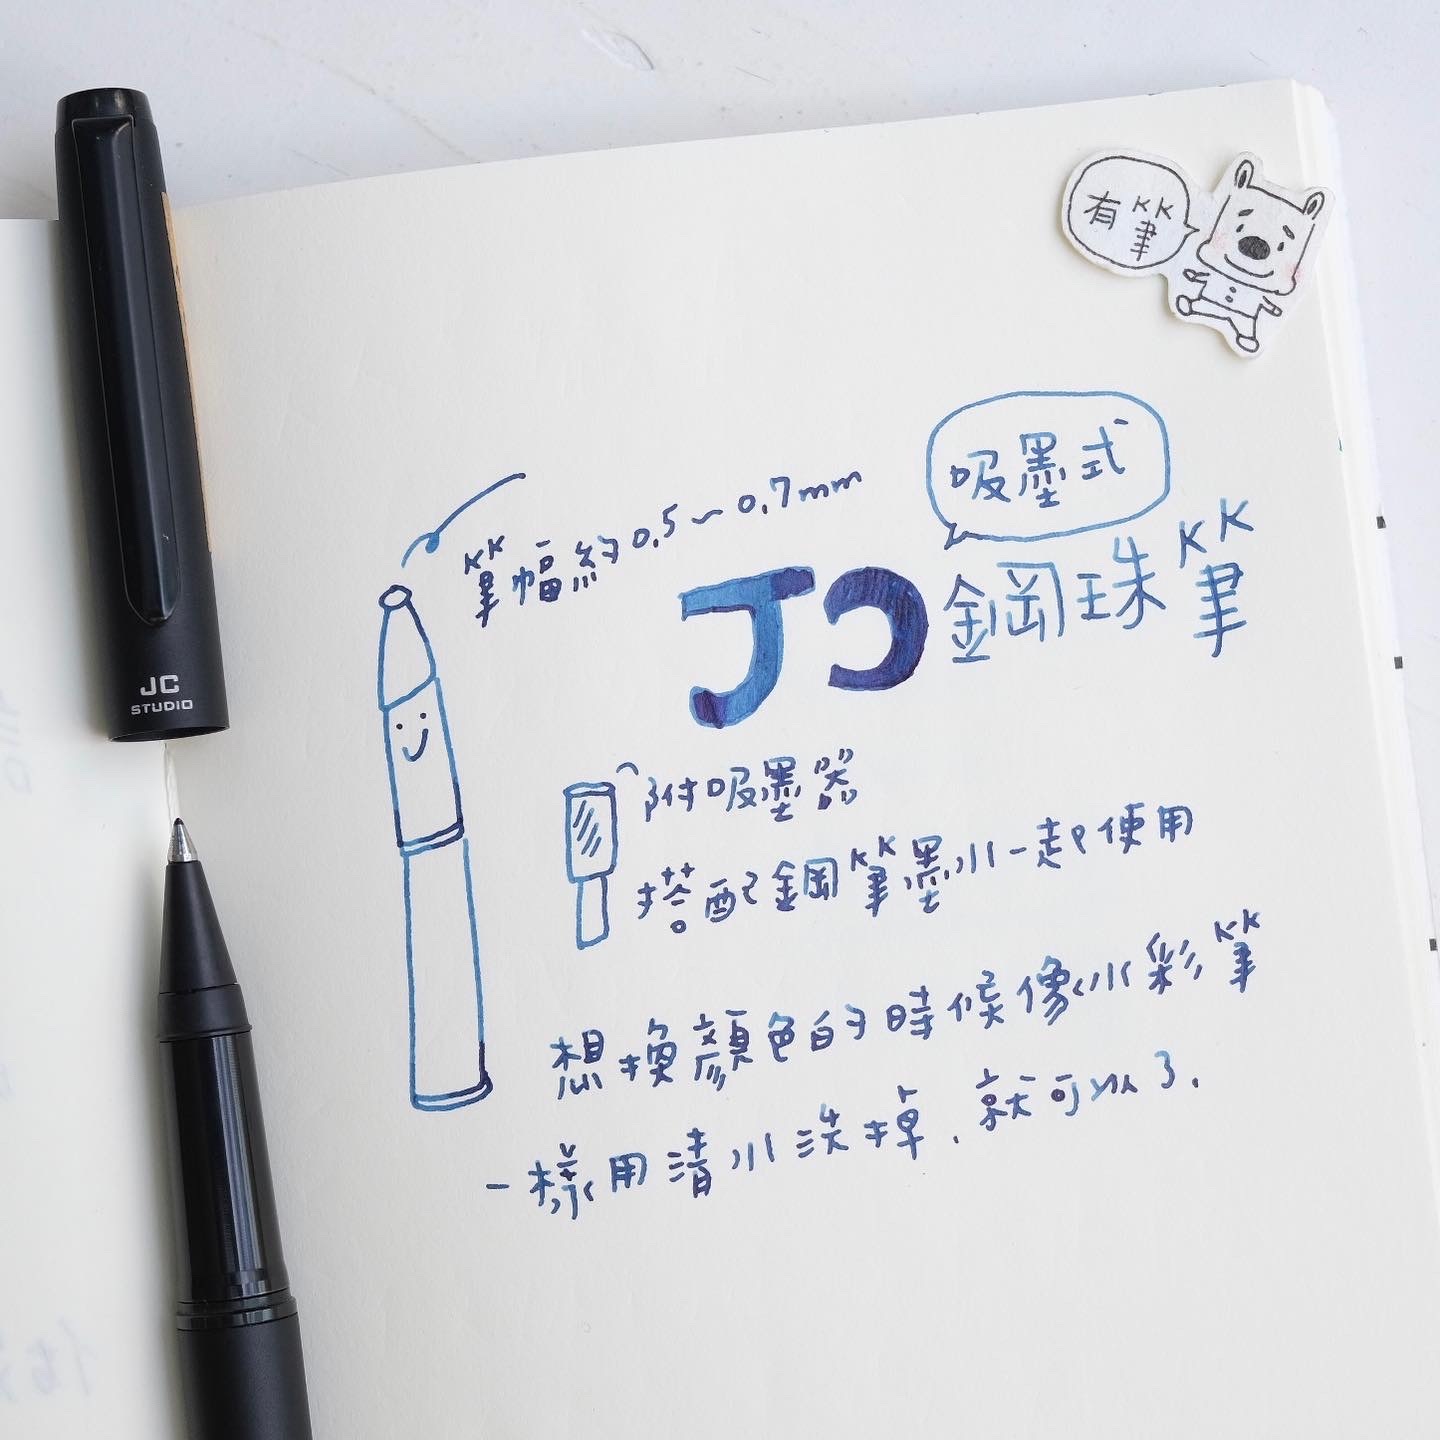 有筆
吸墨式
筆幅約0.5~0.7mm
JC鋼珠筆
JC
STUDIO
附吸墨器
搭配鋼筆墨水一起使用
想換顏色的時候像水彩筆
一樣用清水洗掉.就可以了.